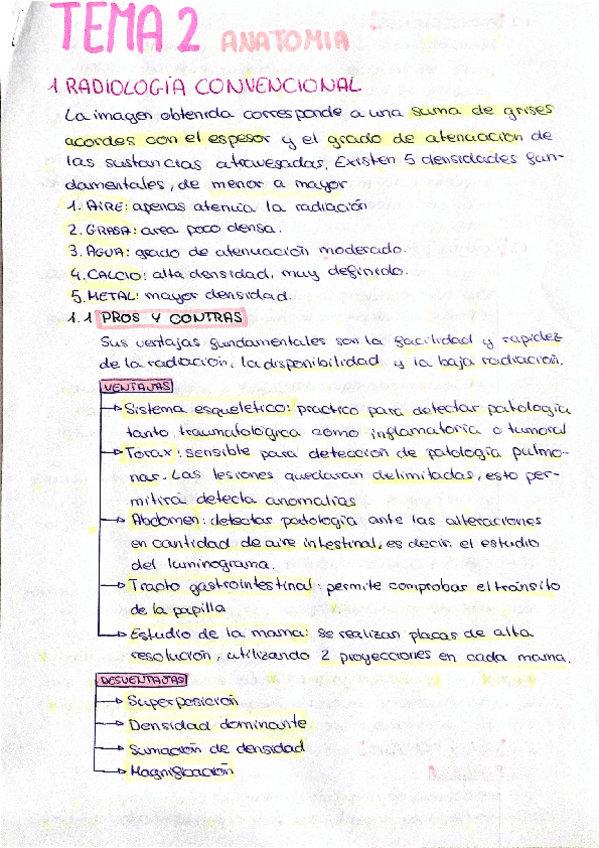 TEMA 2 ANATOMIA
1 RADIOLOGÍA CONVENCIONAL
La imagen obtenida corresponde a una suma de grises
acordes con el espesor y el grado de atenuación de
las sustancias atravesadas. Existen 5 densidades fun-
damentales, de menor a mayor
1. AIRE: apenas atenúa la radiación
2. GRASA: area poco densa.
3. AGUA: grado de atenuación moderado.
4. CALCIO: alta densidad, muy definido.
5. METAL: mayor densidad.
1.1 PROS Y CONTRAS
Sus ventajas fundamentales son la facilidad y rapidez
de la radiación, la disponibilidad y la baja radiación.
VENTAJAS
Sistema esqueletico: practico para detectar patología
tanto traumatológica como inflamatoria o tumoral
Torax: sensible para detección de patología pulmo-
nar. Las lesiones quedaran delimitadas, esto per-
mitirá detecta anomalías
Abdomen: detectar patología ante las alteraciones
en cantidad de aire intestinal, es decir, el estudio
del luminograma.
Tracto gastrointestinal: permite comprobar el tránsito
de la papilla
Estudio de la mama: se realizan placas de alta
resolución, utilizando 2 proyecciones en cada mama.
DESVENTAJAS
Superposición
Densidad dominante
Sumación de densidad
Magnificación